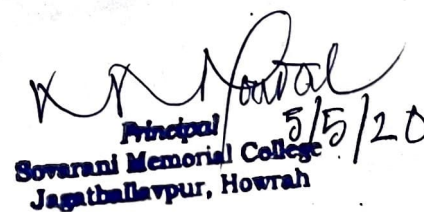 5/5/20
Principal
Sovarani Memorial College
Jagatballavpur, Howrah